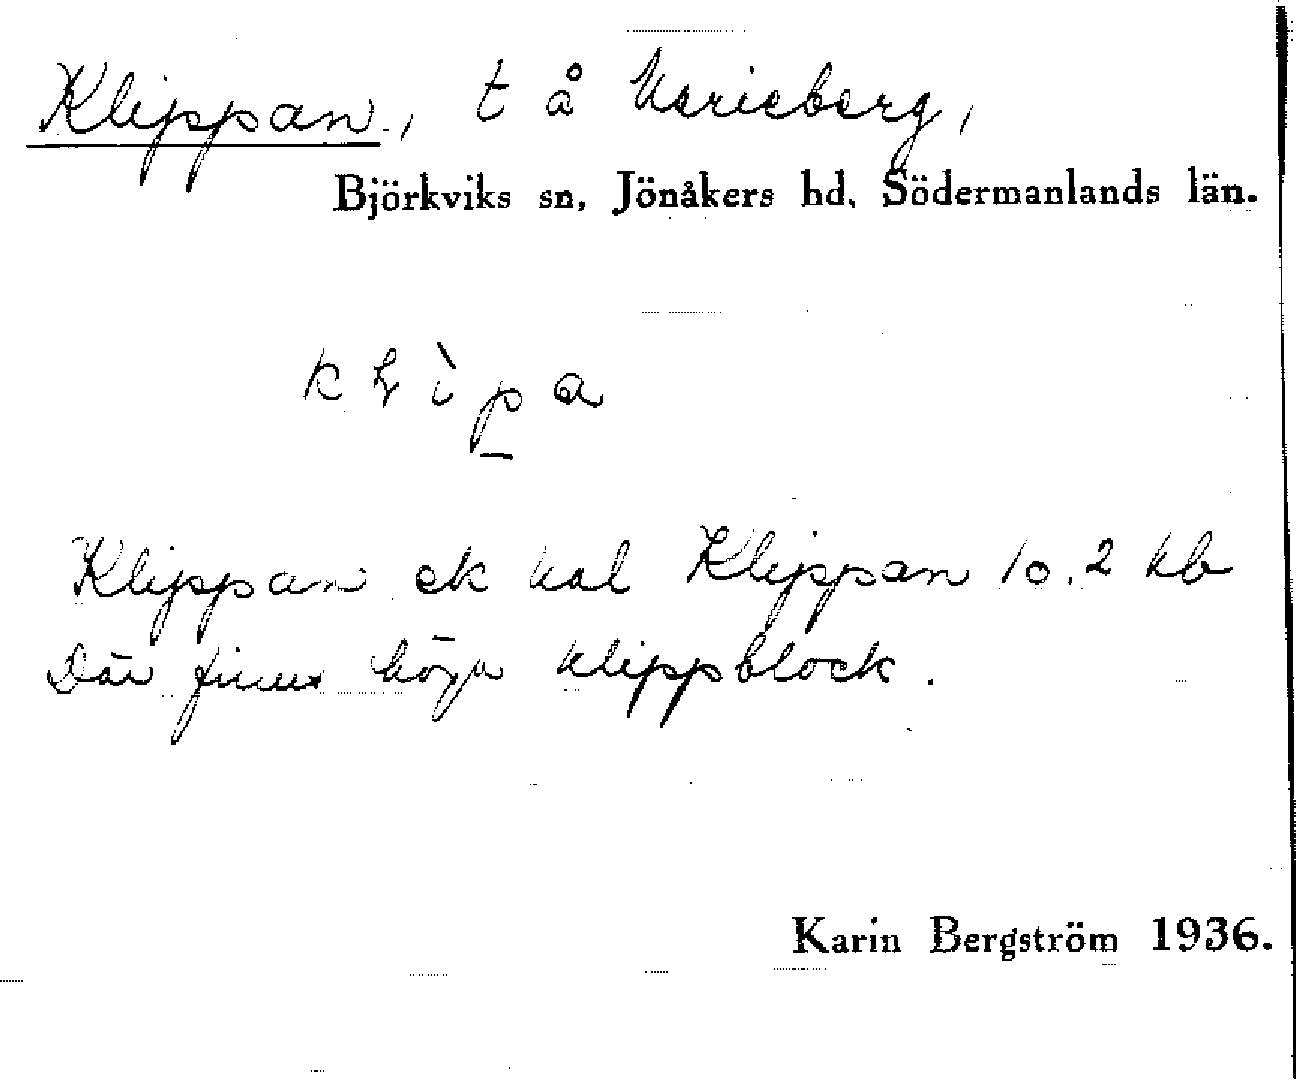 Klippan, t å Marieberg,
Björkviks sn, Jönåkers hd, Södermanlands län.
kḷìp̲a
Klippan ek kal Klippan 10.2 kb
Där finns höga klippblock.
Karin Bergström 1936.